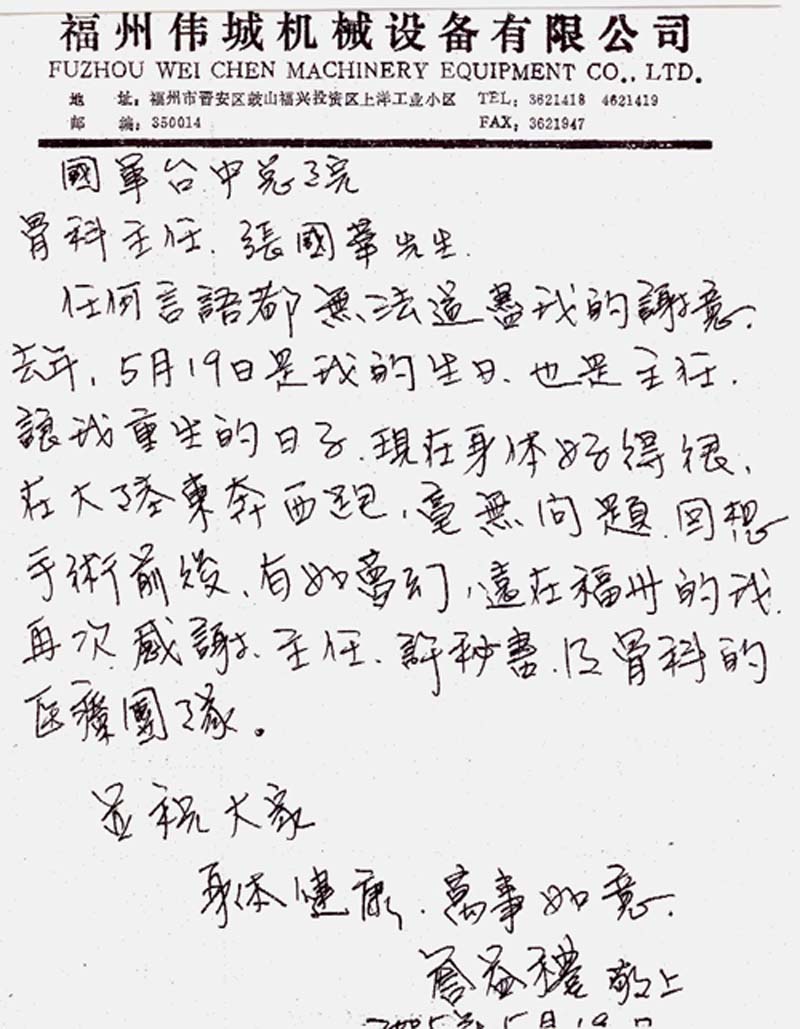 福州伟城机械设备有限公司
FUZHOU WEI CHEN MACHINERY EQUIPMENT CO., LTD.
地 址：福州市晋安区鼓山福兴投资区上洋工业小区 TEL：3621418 4621419
邮 编：350014 FAX：3621947
國軍台中总院
骨科主任．張國華先生．
任何言語都無法道盡我的謝意．
去年，5月19日是我的生日、也是主任．
讓我重生的日子．現在身体好得很，
在大陸東奔西跑，毫無问題．回想
手術前後、有如夢幻，遠在福州的我．
再次感謝．主任．許秘書．及骨科的
医療團隊。
並祝大家
身体健康．萬事如意．
詹益禮 敬上
2005年5月19日